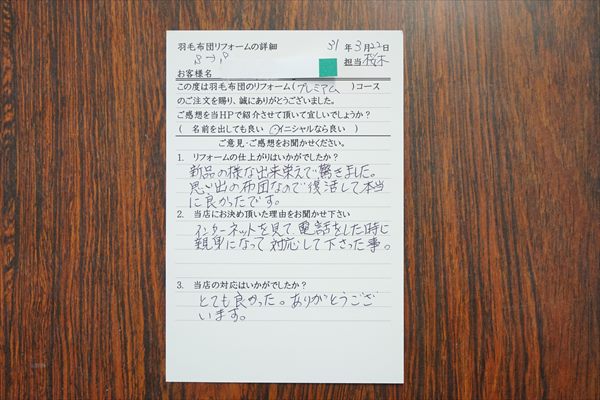 羽毛布団リフォームの詳細
31 年 3 月 22 日
S→P
担当 桜木
お客様名
この度は羽毛布団のリフォーム(プレミアム )コース
のご注文を賜り、誠にありがとうございました。
ご感想を当HPで紹介させて頂いて宜しいでしょうか?
( 名前を出しても良い ・イニシャルなら良い )
ご意見・ご感想をお聞かせください。
1. リフォームの仕上がりはいかがでしたか?
新品の様な出来栄えで驚きました。
思い出の布団なので復活して本当
に良かったです。
2. 当店にお決め頂いた理由をお聞かせ下さい
インターネットを見て電話をした時に
親身になって対応して下さった事。
3. 当店の対応はいかがでしたか?
とても良かった。ありがとうござ
います。